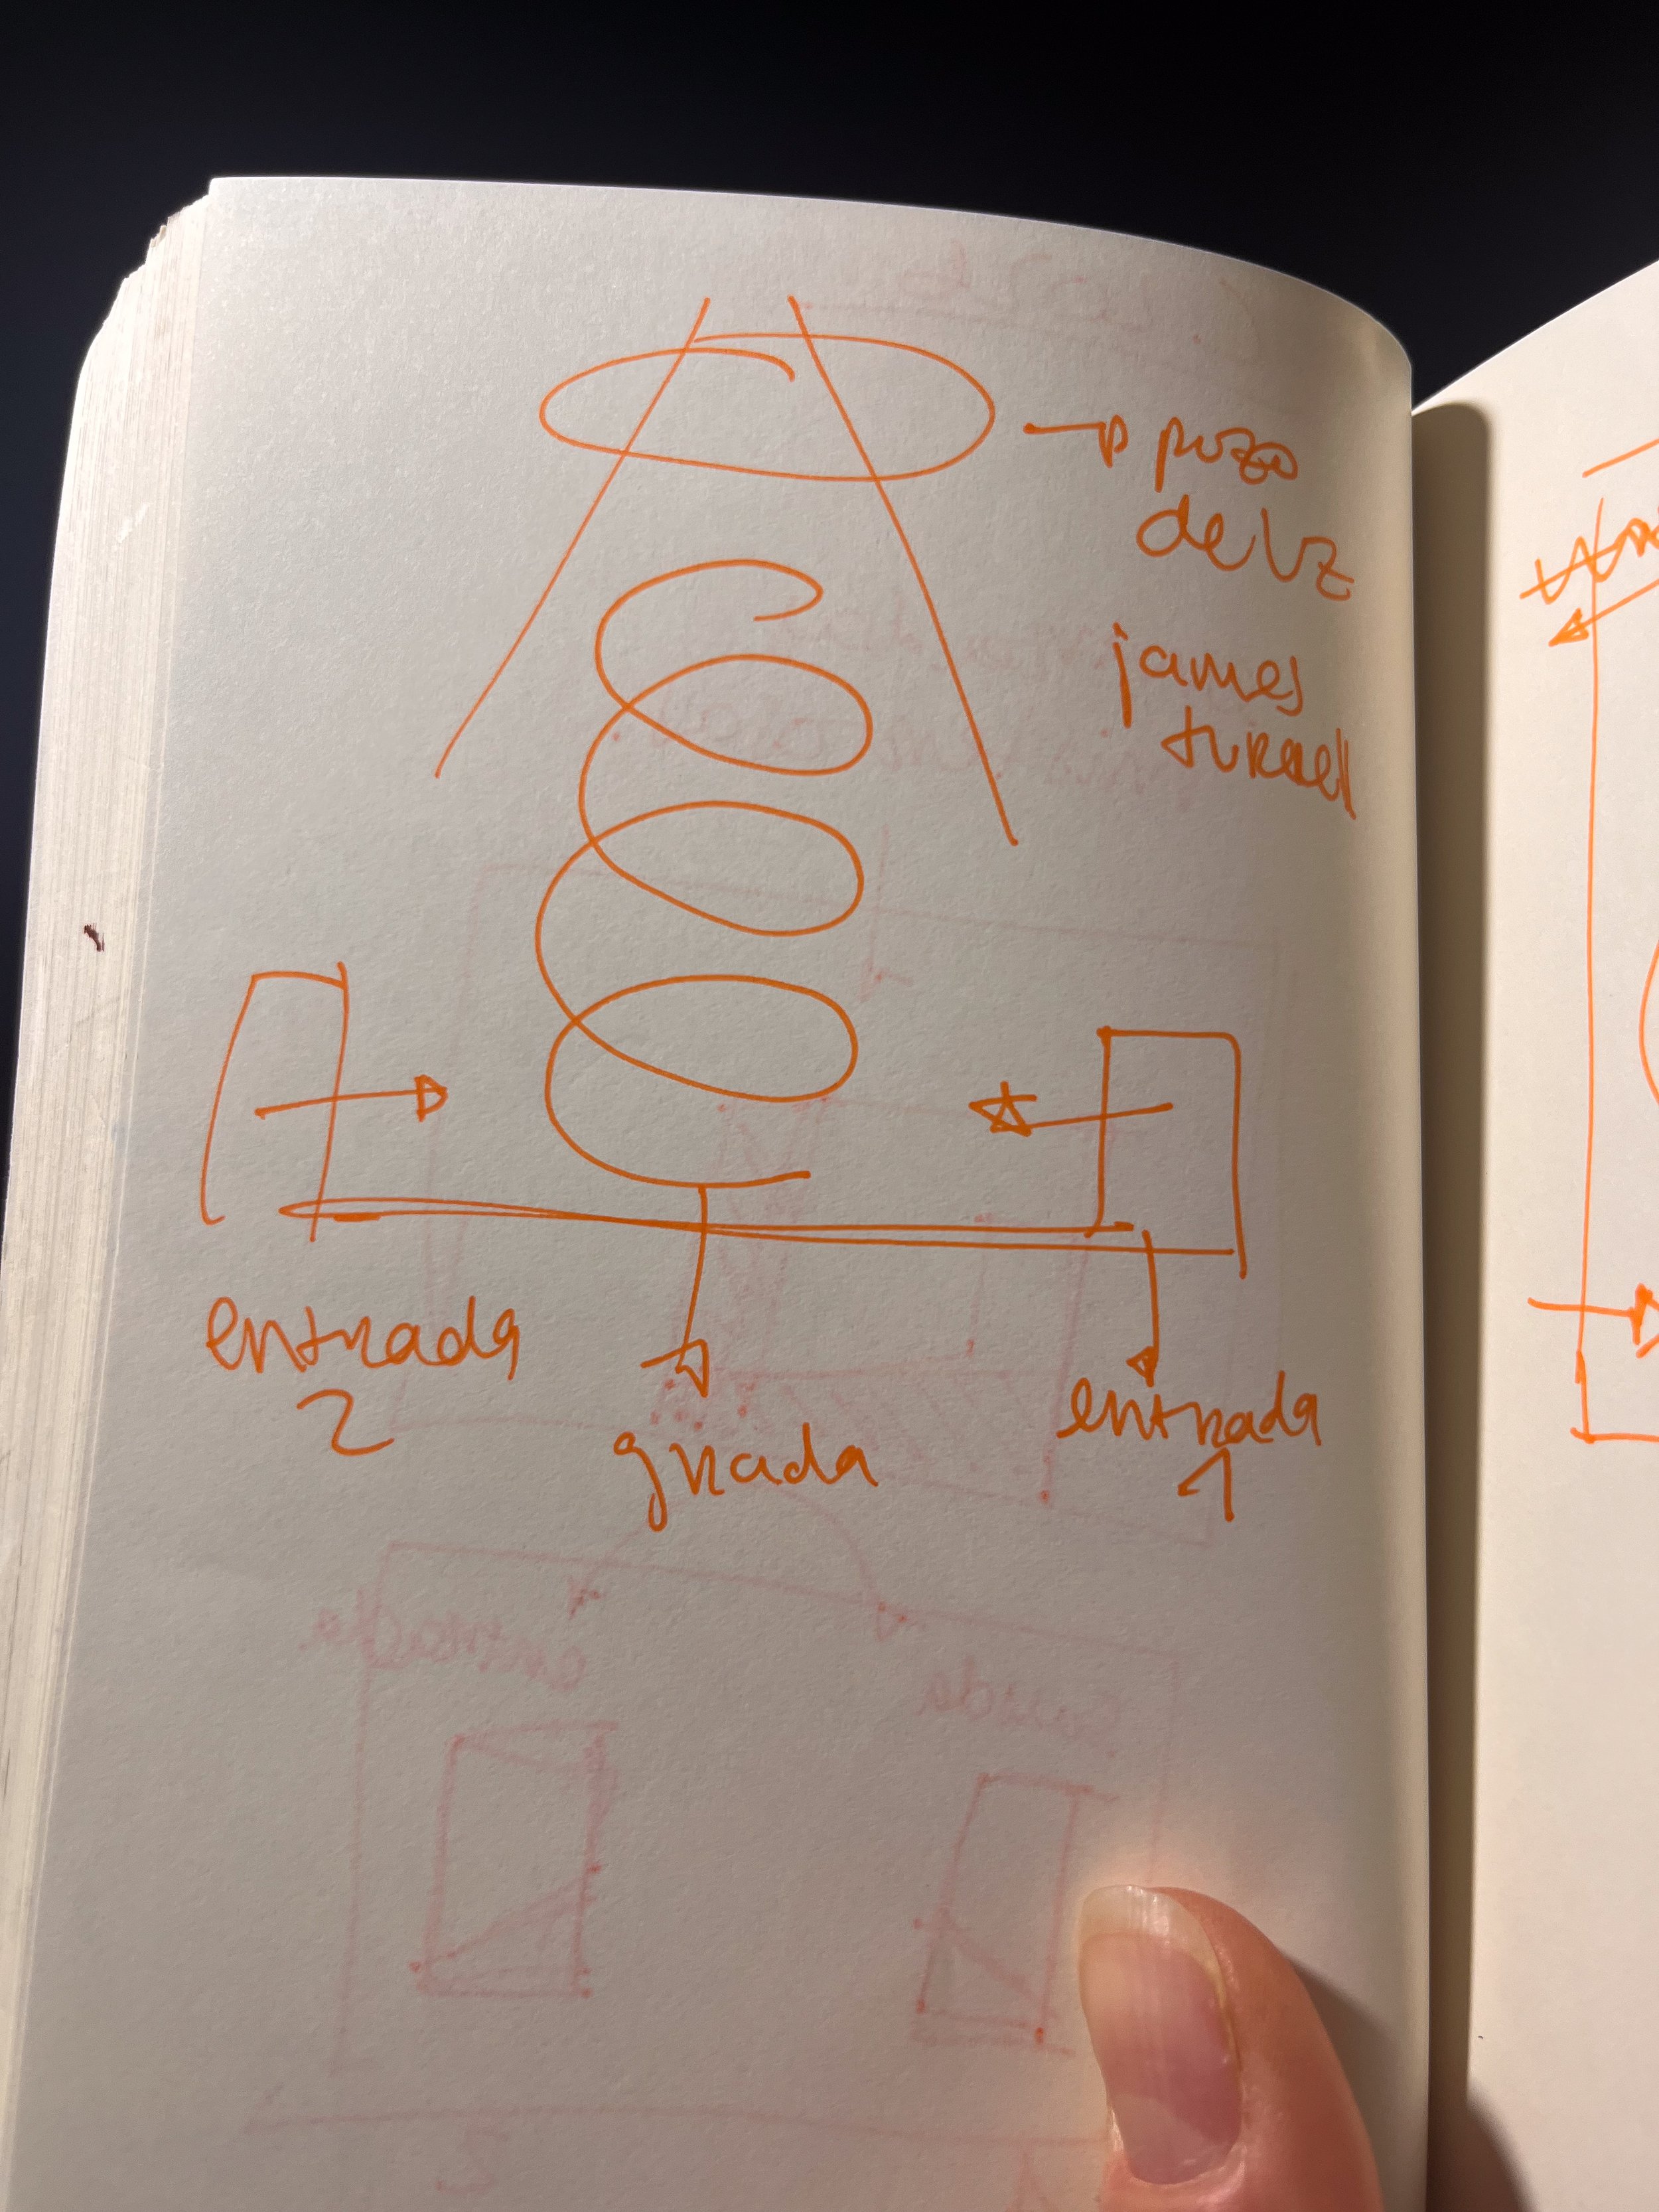 pozo
de lz
james
turrell
entrada
2
grada
entrada
1